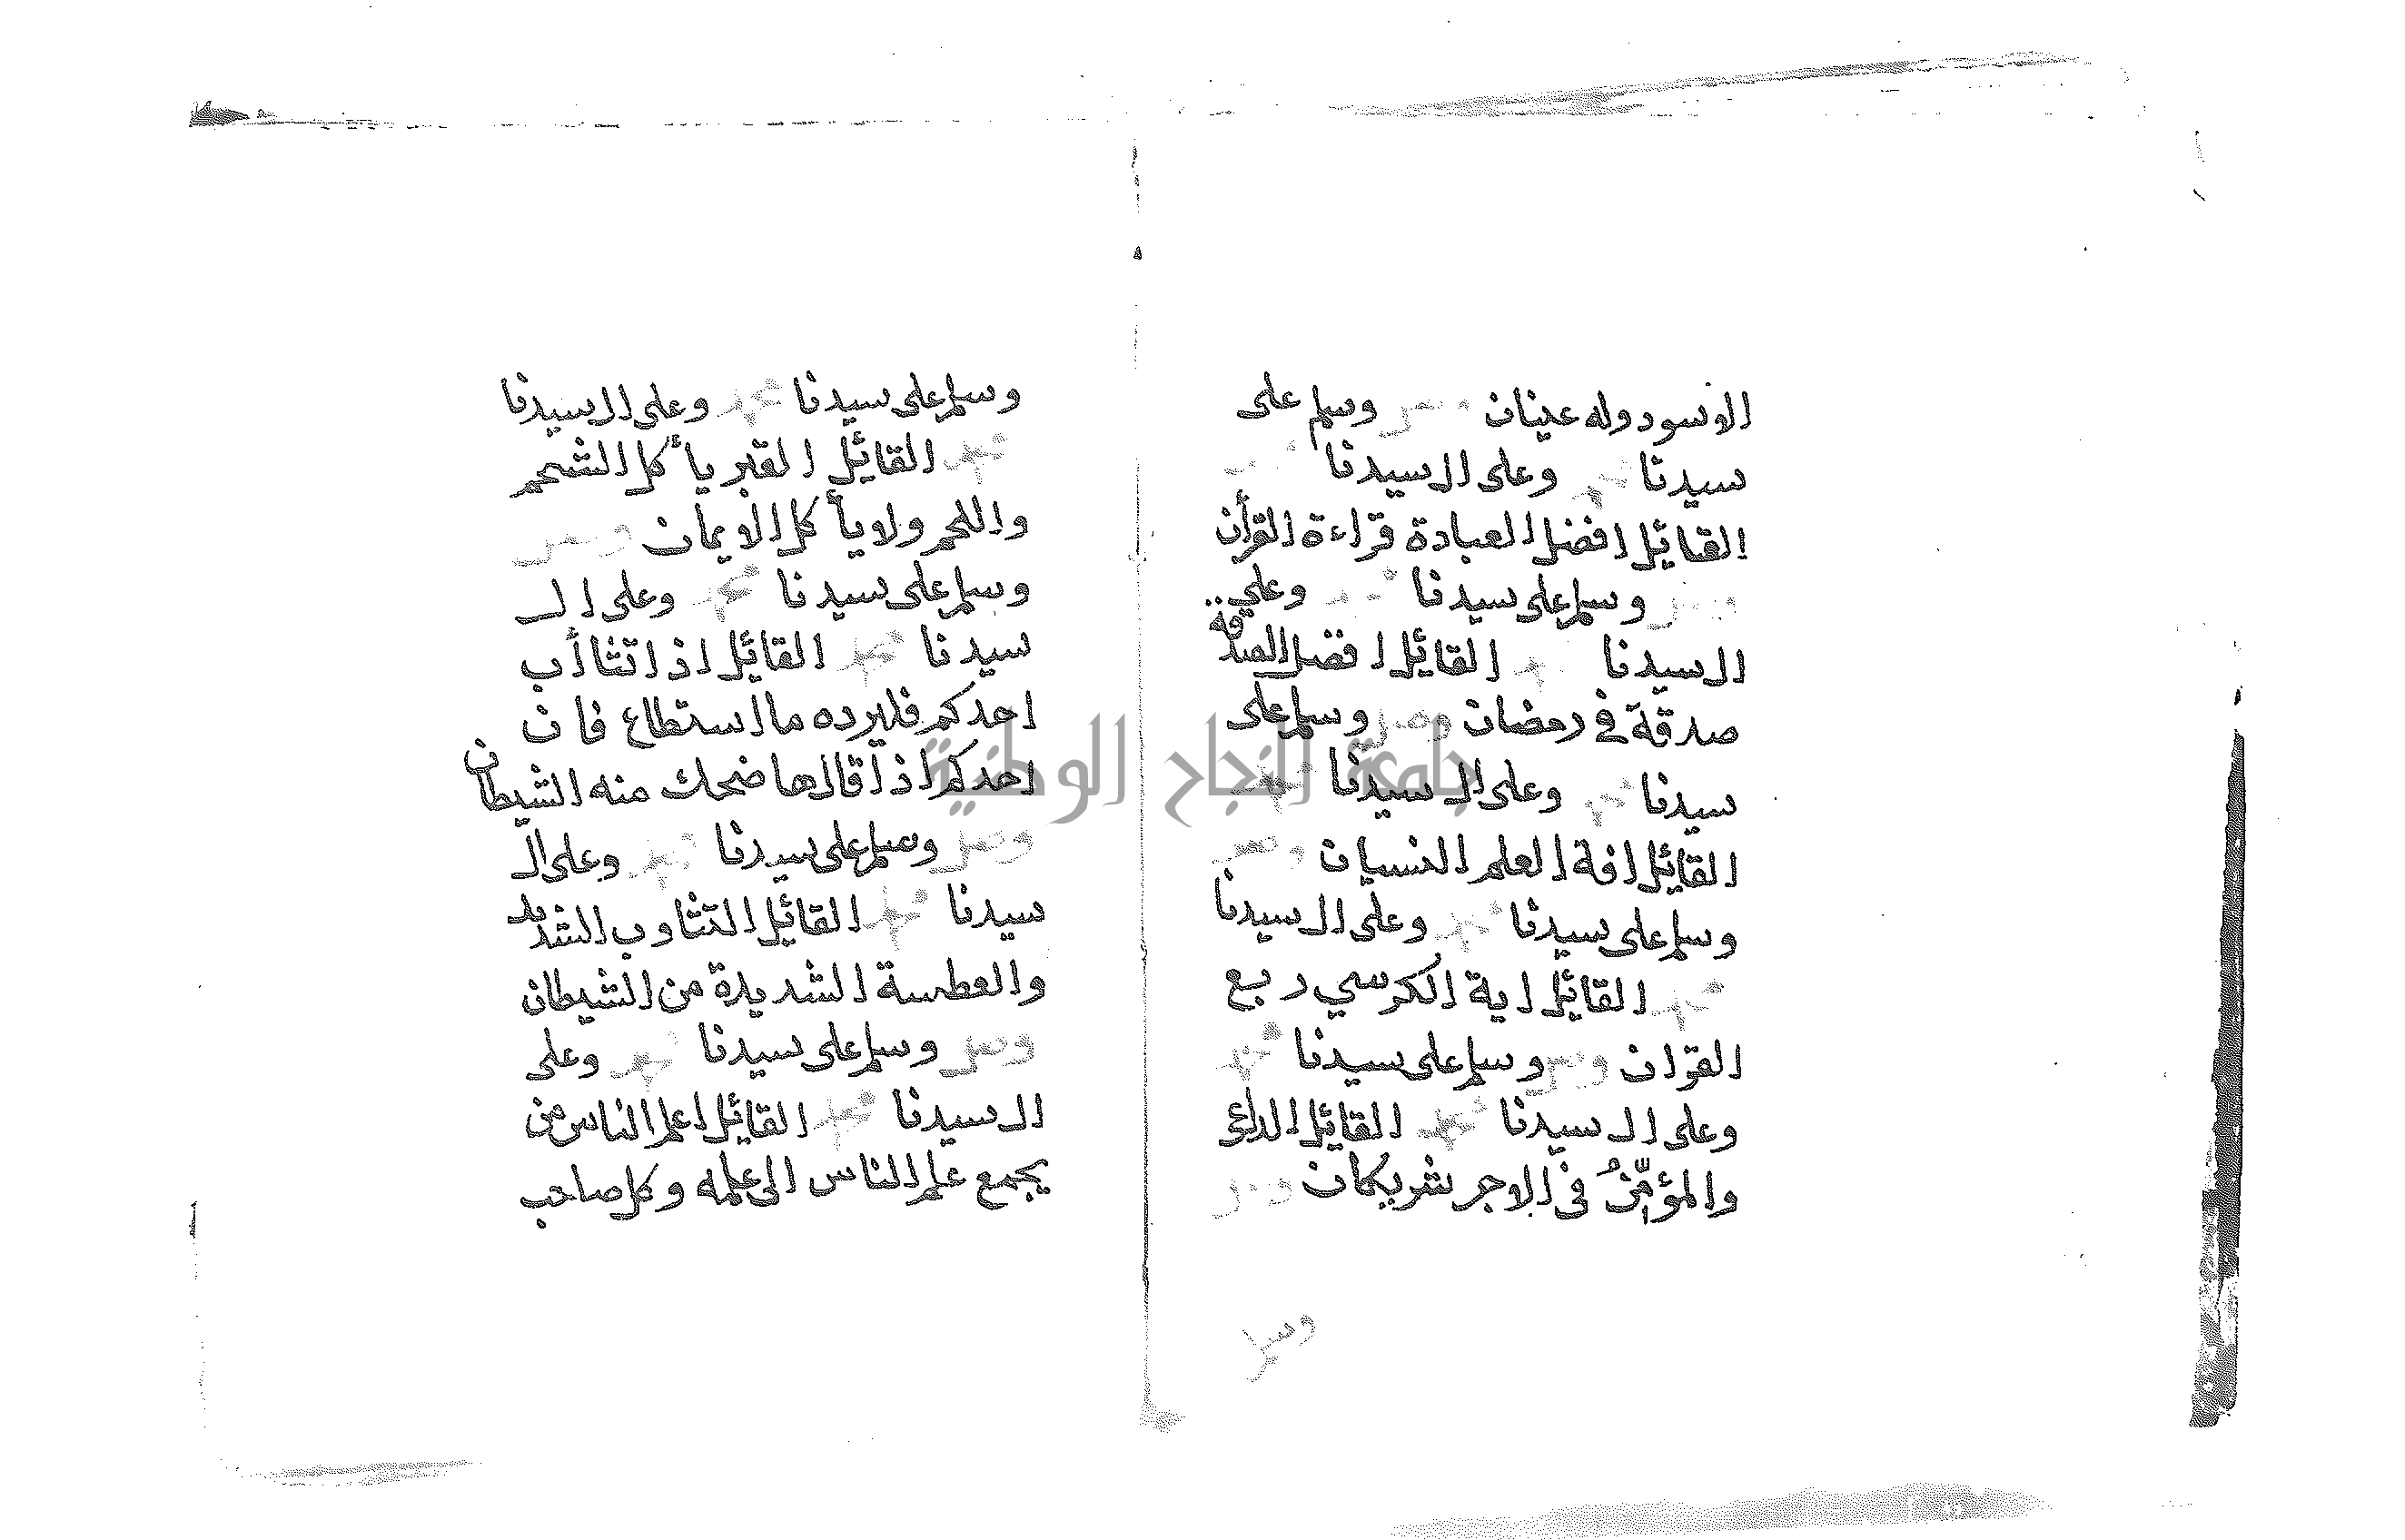 الاسود وله عينان وصل وسلم على
سيدنا محمد وعلى ال سيدنا
القائل افضل العبادة قراءة القرأن
وصل وسلم على سيدنا محمد وعلى
ال سيدنا محمد القائل افضل الصدقة
صدقة في رمضان وصل وسلم على
سيدنا محمد وعلى ال سيدنا محمد
القائل افة العلم النسيان وصل
وسلم على سيدنا محمد وعلى ال سيدنا
محمد القائل اية الكرسي ربع
القران وصل وسلم على سيدنا محمد
وعلى ال سيدنا محمد القائل الداعي
والمؤمِّنُ في الاجر شريكان وصل
وسلم
وسلم على سيدنا محمد وعلى ال سيدنا
محمد القائل القبر يأكل الشحم
واللحم ولا يأكل الايمان وصل
وسلم على سيدنا محمد وعلى ال
سيدنا محمد القائل اذا تثاأب
احدكم فليرده ما استطاع فان
احدكم اذا قال ها ضحك منه الشيطان
وصل وسلم على سيدنا محمد وعلى ال
سيدنا محمد القائل التثاوب الشديد
والعطسة الشديدة من الشيطان
وصل وسلم على سيدنا محمد وعلى
ال سيدنا محمد القائل اعلم الناس من
يجمع علم الناس الى علمه وكل صاحب
جامعة النجاح الوطنية